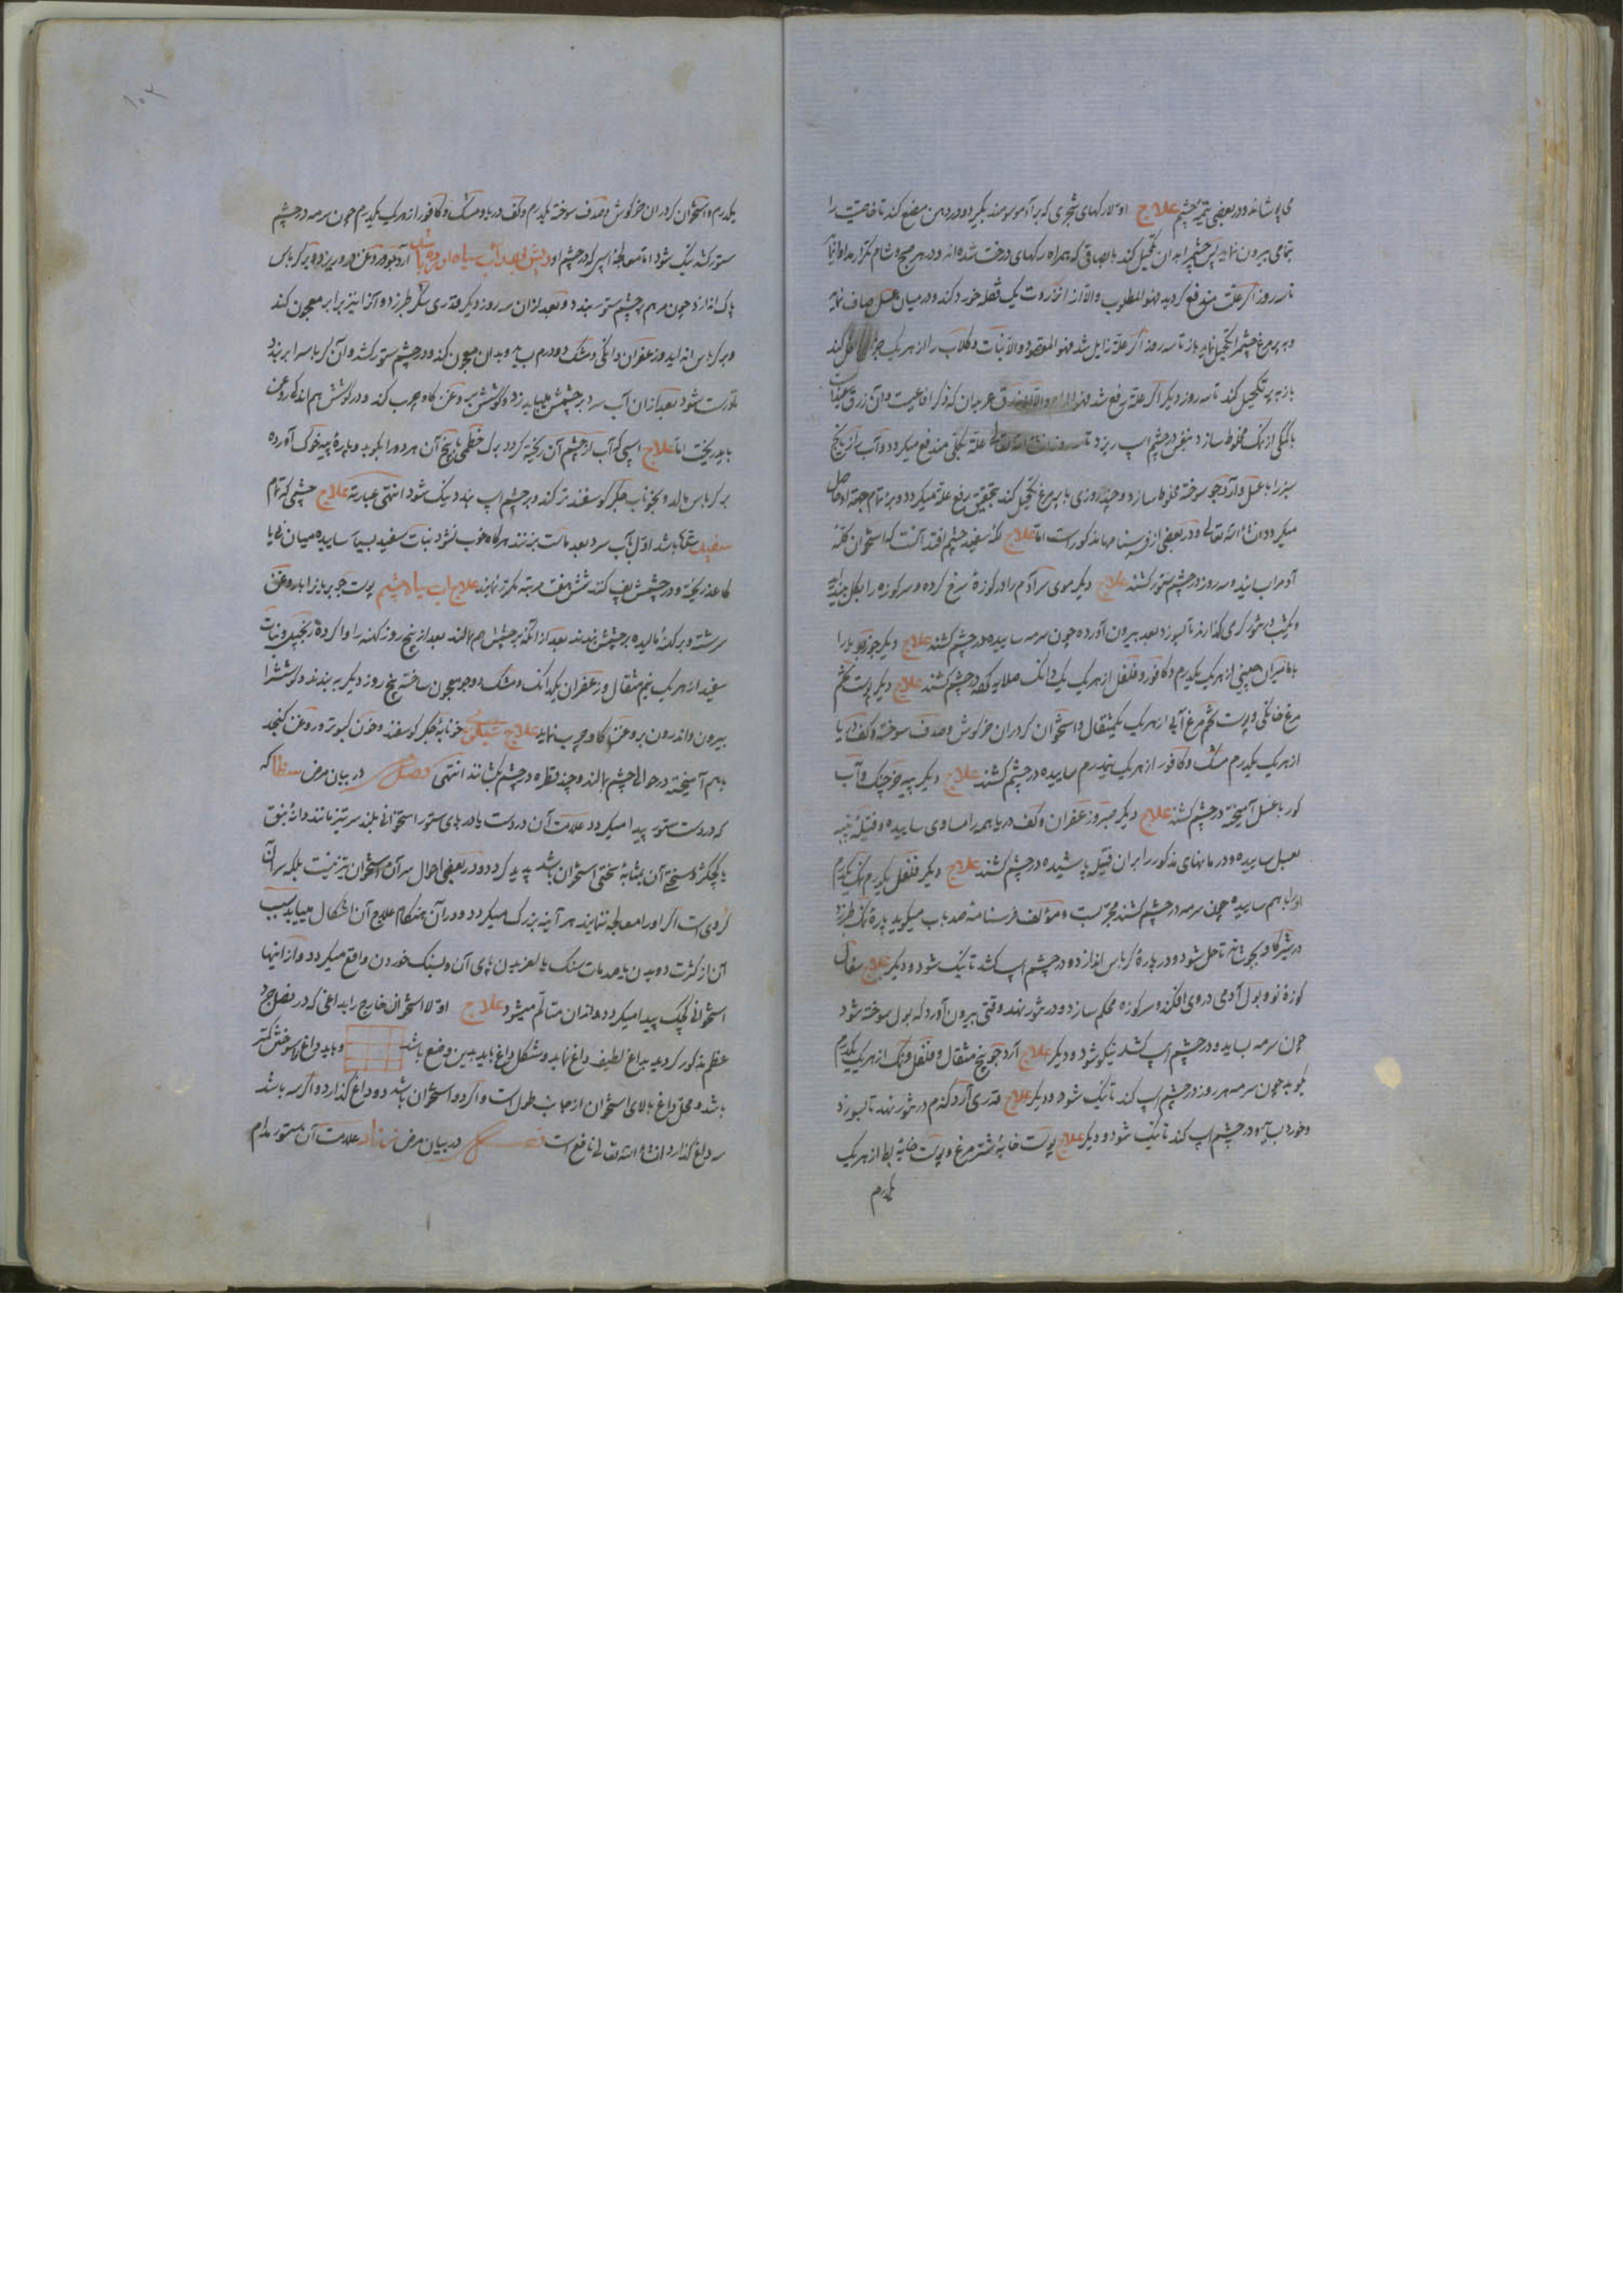 می پوشاند و در بعضی تتمهٔ چشم علاج اولا رکهای شجری که برآدموسومند بکیرد و در دهن مضغ کند تا خاصیت را
بتمامی بیرون نماید پس چشم را بدان تکحیل کند با بصاقی که همراه رکهای درخت شده اند و در هر صبح و شام مکرر
تا سه روز اکر علت مندفع کردید فهو المطلوب والا از انزروت یک قفله خورد کند و در میان عسل صاف نماید
و به پر مرغ چشم را تکحیل نماید باز تا سه روز اکر علة زایل شد فهو المقصود والا نبات و کلاب را از هر یک کند
باز به پر تکحیل کند تا سه روز دیکر اکر علة رفع شد که ذکر و آن زرق
با نمک مخلوط سازد بنفس در چشم اسپ ریزد تا سه روز انشاء الله تعالی علة بکلی مندفع میکردد و آب
سبز را با عسل و آرد جو سوخته مخلوط سازد و چند روزی با پر مرغ تکحیل کند بتحقیق رفع علة میکردد و
میکردد انشاء الله تعالی و در بعضی از فرسنامها مذکور است اما علاج لکهٔ سفید در چشم افتد آنست که استخوان کلهٔ
آدم را بسایند و سه روز در چشم ستور کشند علاج دیکر موی سر آدم را در کوزهٔ سرخ کرده و سر کوزه را بکل
و یکشب در تنور کرمی کذارند تا بسوزد بعد بیرون آورده چون سرمه ساییده در چشم کشند علاج دیکر جوز بویا را
با مامیران چینی از هر یک یکدرم و کافور و فلفل از هر یک یک دانک صلایه کرده در چشم کشند علاج دیکر پوست تخم
مرغ خانکی و پوست تخم مرغ آبی از هر یک یکمثقال و استخوان کردران خرکوش و صدف سوخته و کف دریا
از هر یک یکدرم مشک و کافور از هر یک نیمدرم ساییده در چشم کشند علاج دیکر پیه خرچنک و آب
کور با عسل آمیخته در چشم کشند علاج دیکر صبر و زعفران و کف دریا همه را مساوی ساییده و فتیلهٔ پنبه
بعسل ساییده و درمانهای مذکور را بران فتیله پاشیده در چشم کشند علاج دیکر فلفل یکدرم نمک یکدرم
او را باهم ساییده چون سرمه در چشم کشند مجرب است و مؤلف فرسنامهٔ صد باب میکوید پارهٔ نمک طبرزد
در شیر کاو بجوشاند تا حل شود و در پارهٔ کرباس اندازد و در چشم اسپ کشد تا نیک شود و دیکر علاج سفال
کوزهٔ نو و بول آدمی در وی افکند و سر کوزه محکم سازد و در تنور نهد وقتی بیرون آورد که بول سوخته شود
چون سرمه بساید و در چشم اسپ کشد نیکو شود و دیکر علاج آرد جو پنج مثقال و فلفل و نمک از هر یک یکدرم
بکوبد چون سرمه هر روز در چشم اسپ کند تا نیک شود و دیکر علاج قدری آرد کندم در تنور نهد تا بسوزد
و خورد بساید و در چشم اسپ کند تا نیک شود و دیکر علاج پوست خایهٔ شترمرغ و پوست خایهٔ بط از هر یک
یکدرم
۱۰۲
یکدرم و استخوان کردران خرکوش و صدف سوخته یکدرم و کف دریا و مشک و کافور از هر یک یکدرم چون سرمه در چشم
ستور کشد نیک شود اما معالجهٔ اسپی که در چشم او آب سیاه آرد جو در روغن در و ریزد و بر کرباس
پاک اندازد چون مرهم بر چشم ستور بندد و بعد از ان سه روز دیکر قدری شکر طبرزد و آرا نیز برابر معجون کند
و بر کرباس انداید و زعفران دانکی و مشک دو درم بساید و بدان معجون کند و در چشم ستور کشد و آن کرباس را بر بندد
درست شود بعد از ان آب سرد بر چشمش میباید زد و کوشش بروغن کاو چرب کند و در کوشش هم اندک روغن
باید ریخت اما علاج اسپی که آب از چشم آن ریخته کردد برک خطمی با بیخ آن هر دو را بکوبد و با پارهٔ پیه خوک آورده
بر کرباس مالد و بخوناب جکر کوسفند تر کند و بر چشم اسپ بندد نیک شود انتهی عبارته علاج چشمی که تمام
سفید باشد اول بآب سرد بعد ماست بزنند هرکاه خوب نشود نبات سفید بسیار ساییده میان نی یا
کاغذ ریخته و در چشمش پف کنند شش هفت مرتبه مکرر نمایند علاج آب سیاه چشم پوست جو بریان را با روغن
سرشته و بر کهنهٔ مالیده بر چشمش بندند بعد از آنکه بر چشمش هم مالند بعد از پنج روز کهنه را واکرده زنجبیل و نبات
سفید از هر یک نیم مثقال و زعفران یکدانک و مشک دو جو معجون ساخته پنج روز دیکر به بندند و کوشش را
بیرون و اندرون بروغن کاو چرب نماید علاج شبکوری خونابهٔ جکر کوسفند و خون کبوتر و روغن کنجد
بهم آمیخته در حوالی چشم مالند و چند قطره در چشم چکانند انتهی فصل در بیان مرض سظا که
که در دست ستور پیدا میکردد علامت آن در دست یا در پای ستور استخوانی بلند سرتیز مانند دانهٔ فندق
یا کوچکتر و سختی آن بمثابهٔ سختی استخوان باشد پدید کردد و در بعضی احوال سر آن استخوان تیز نیست بلکه سر آن
کردی است اکر او را معالجه ننمایند هر آینه بزرک میکردد و در آن هنکام علاج آن اشکال میابد سبب
آن از کثرت دویدن یا صدمات سنک یا لغزیدن پای آن و بسنک خوردن واقع میکردد و از اینها
استخوانی کوچک پیدا میکردد و بدان متألم میشود علاج اولا استخوان خارج را بداغی که در فصل جرد
عظم مذکور کردید بداغ لطیف داغ نماید و شکل داغ باید بدین وضع باشد و باید داغ را سوختش کمتر
باشد و محل داغ بالای استخوان از جانب طول است و اکر دو استخوان باشد دو داغ کذارد و اکر سه باشد
سه داغ کذارد انشاء الله تعالی نافع است فصل در بیان مرض علامت آن ستور مدام